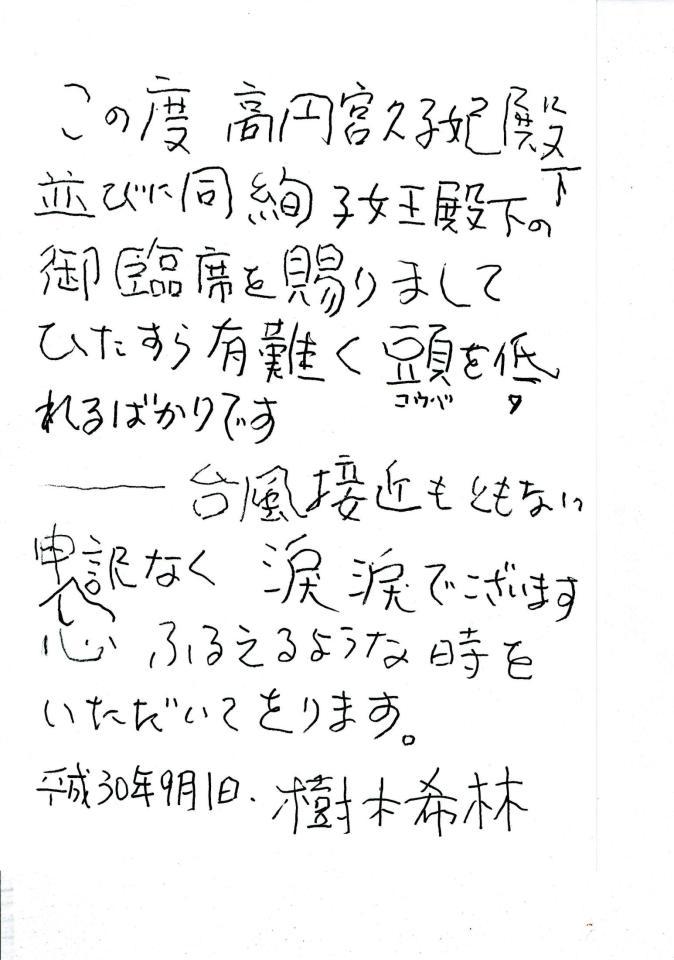 この度 高円宮久子妃殿下
並びに同 絢子女王殿下の
御臨席を賜りまして
ひたすら有難く頭を低
コウベ タ
れるばかりです
―― 台風接近もともない
申し訳なく 涙 涙でございます
心 ふるえるような時を
いただいてをります。
平成30年9月1日. 樹木希林